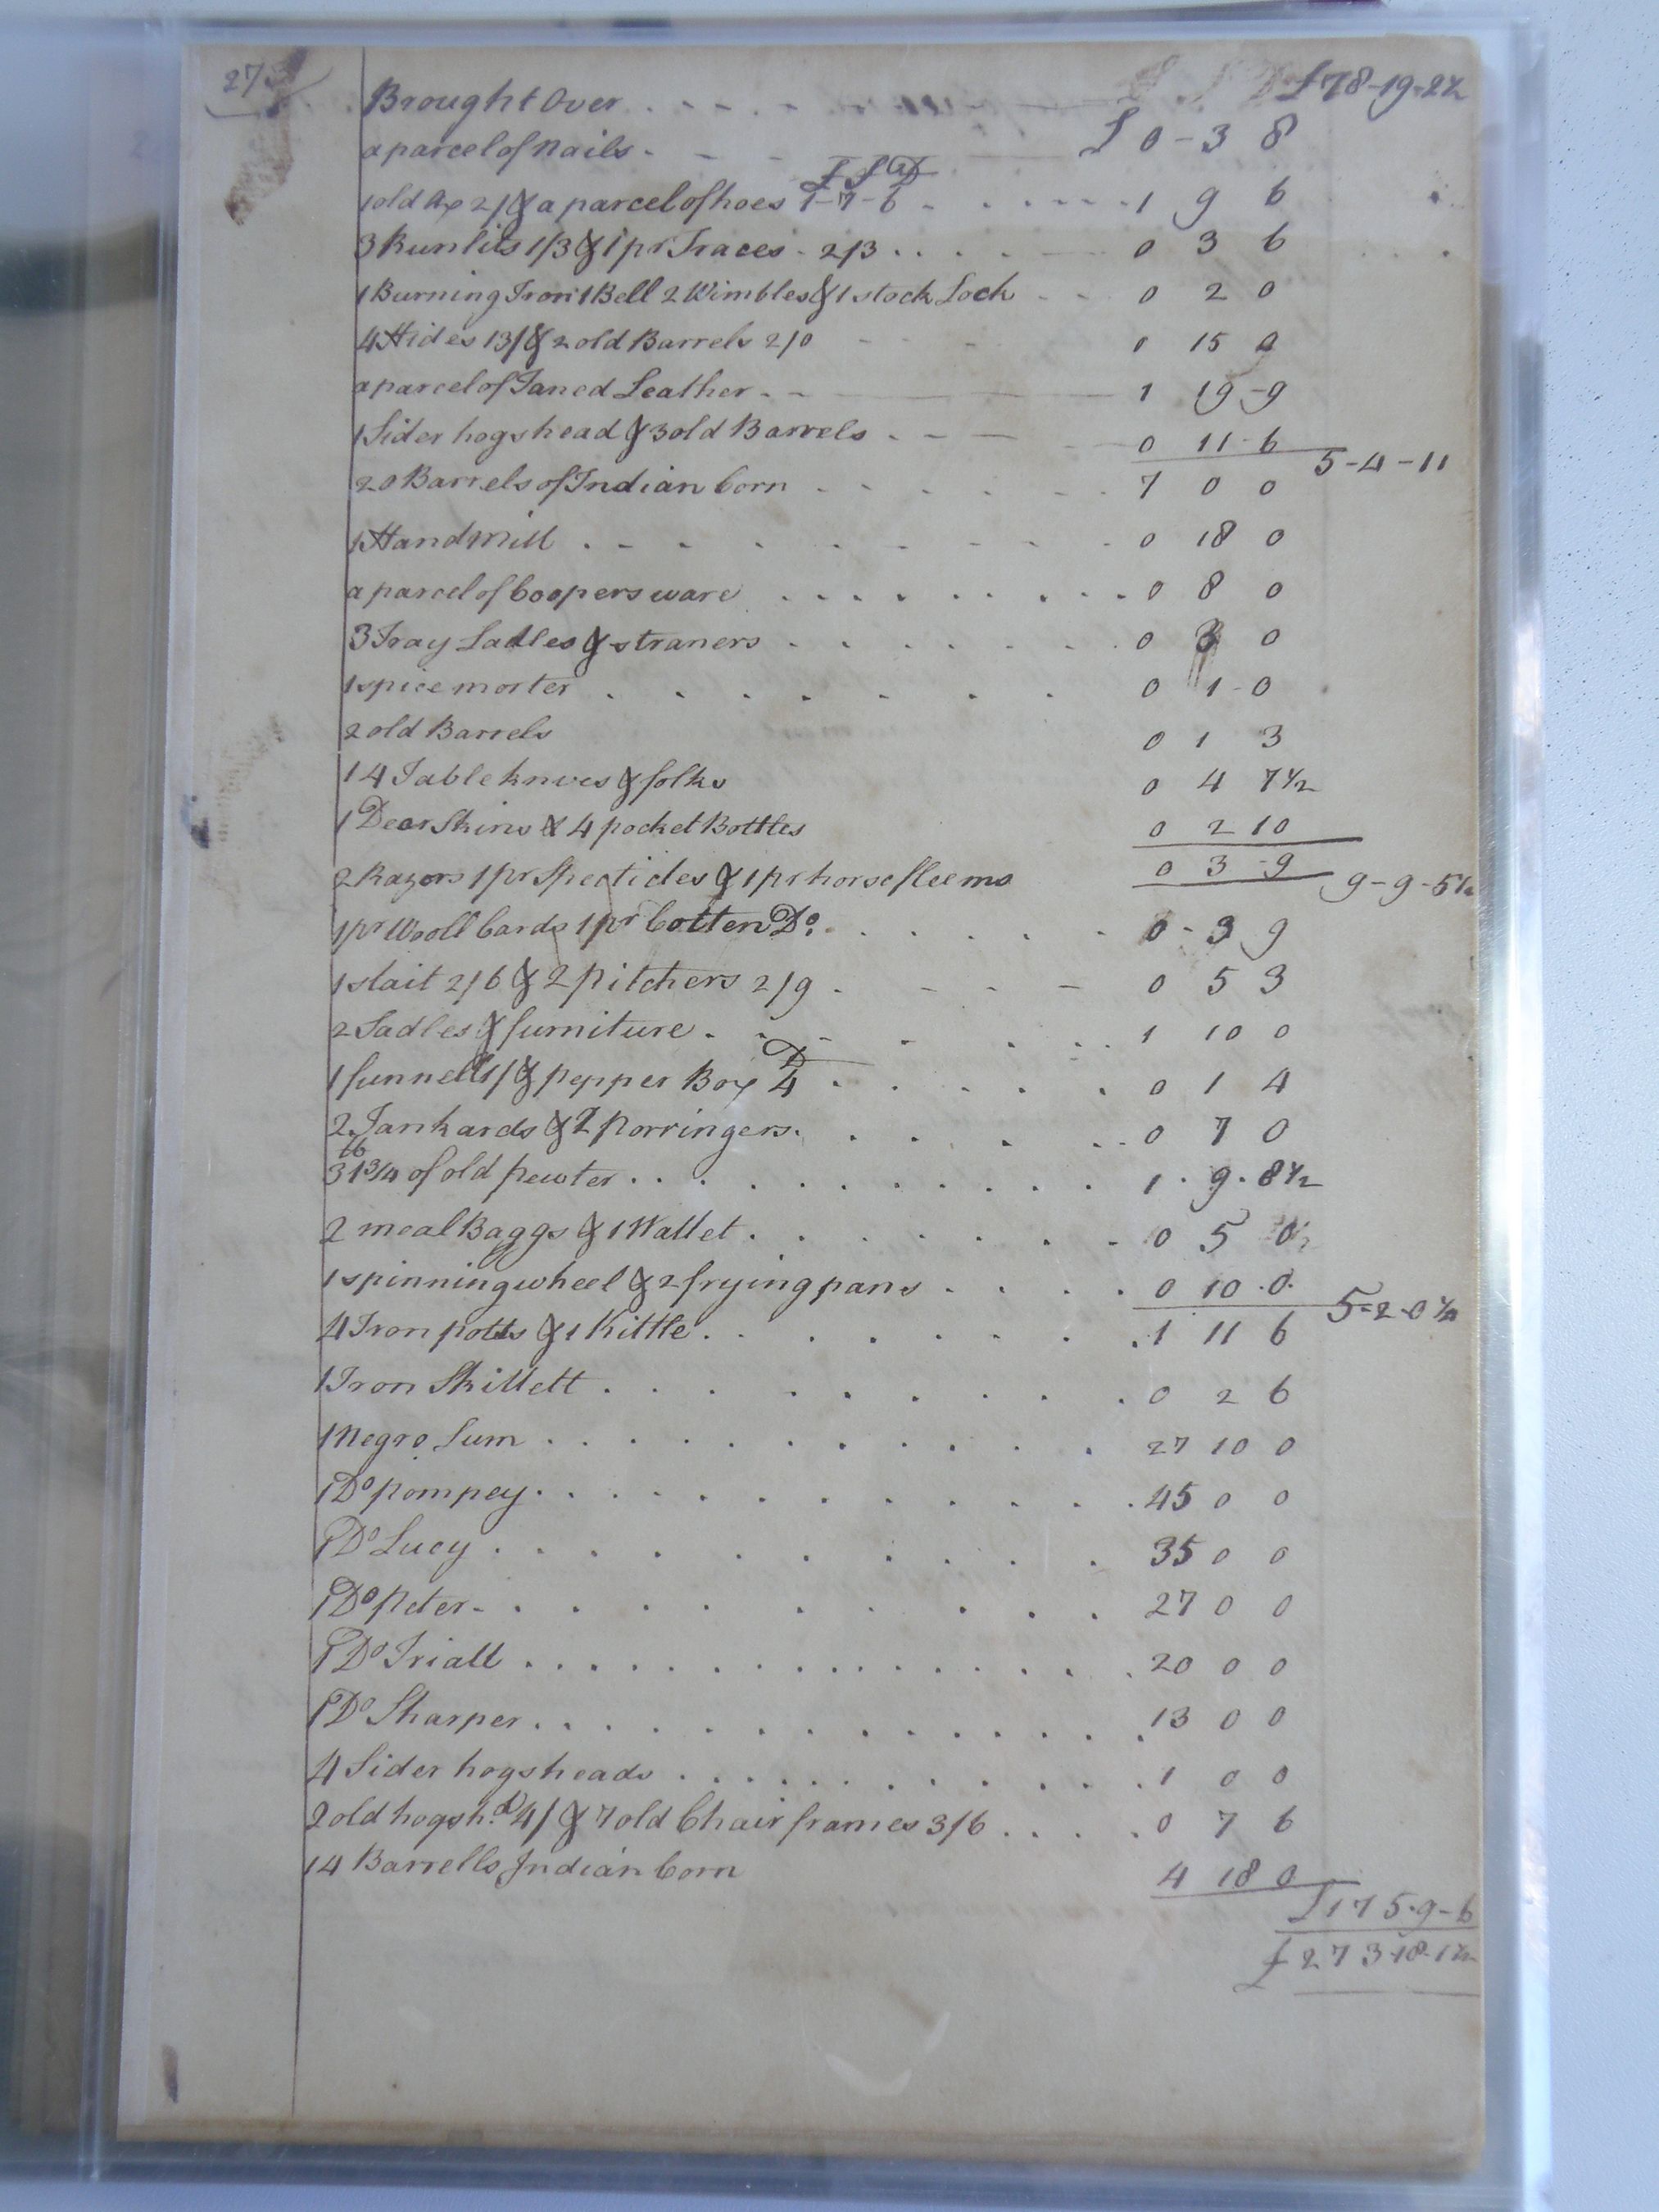 273
Brought Over . . . . . £78-19-2½
a parcel of Nails - - - - £ 0-3 8
£ S D
1 old Ax 2/ & a parcel of hoes 1-7-6 - . . . . 1 9 6
3 Runlits 1/3 & 1 pr Traces - 2/3 . . . . 0 3 6
1 Burning Iron 1 Bell 2 Wimbles & 1 stock Lock - - 0 2 0
4 Hides 13/ & 2 old Barrels 2/0 - - - 0 15 0
a parcel of Taned Leather - - 1 19-9
1 Sider hogshead & 3 old Barrels - - - 0 11-6 5-4-11
20 Barrels of Indian Corn - - - - - - 7 0 0
1 Hand Mill . - - - - - - - - 0 18 0
a parcel of Coopers ware . . . . . . . . . 0 8 0
3 Tray Ladles & straners . . . . . . . 0 3 0
1 spice morter . . . . . . . 0 1-0
2 old Barrels 0 1 3
14 Table knives & folks 0 4 7½
1 Dear Skins & 4 pocket Bottles 0 2 10
2 Razors 1 pr Specticles & 1 pr horse fleems 0 3-9 9-9-5½
1 pr Wooll Cards 1 pr Cotten Do. . . . . . 0-3 9
1 slait 2/6 & 2 pitchers 2/9 - - - - 0 5 3
2 Sadles & furniture . - - - . . . 1 10 0
D
1 funnell 1/ & pepper Box 4 . . . . . 0 1 4
2 Tankards & 2 Porringers . . . . . - 0 7 0
lb
31¾ of old pewter . . . . . . . . . . 1 . 9 . 8½
2 meal Baggs & 1 Wallet . . . . . . - 0 5 0
1 spinning wheel & 2 frying pans . . . . 0 10 . 0 . 5-2-0½
4 Iron potts & 1 Kittle . . . . . . . 1 11 6
1 Iron Skillett . . . . . . . . . 0 2 6
1 Negro Sum . . . . . . . . . 27 10 0
1 Do pompey . . . . . . . . . . 45 0 0
1 Do Lucy . . . . . . . . . 35 0 0
1 Do Peter - . . . . . . . . 27 0 0
1 Do Triall . . . . . . . . . . . . . 20 0 0
1 Do Sharper . . . . . . . . . . . . 13 0 0
4 Sider hogsheads . . . . . . . . . . 1 0 0
2 old hogshd. 4/ & 7 old Chair frames 3/6 . . . . 0 7 6
14 Barrells Indian Corn 4 18 0
£175-9-6
£273-18-1½